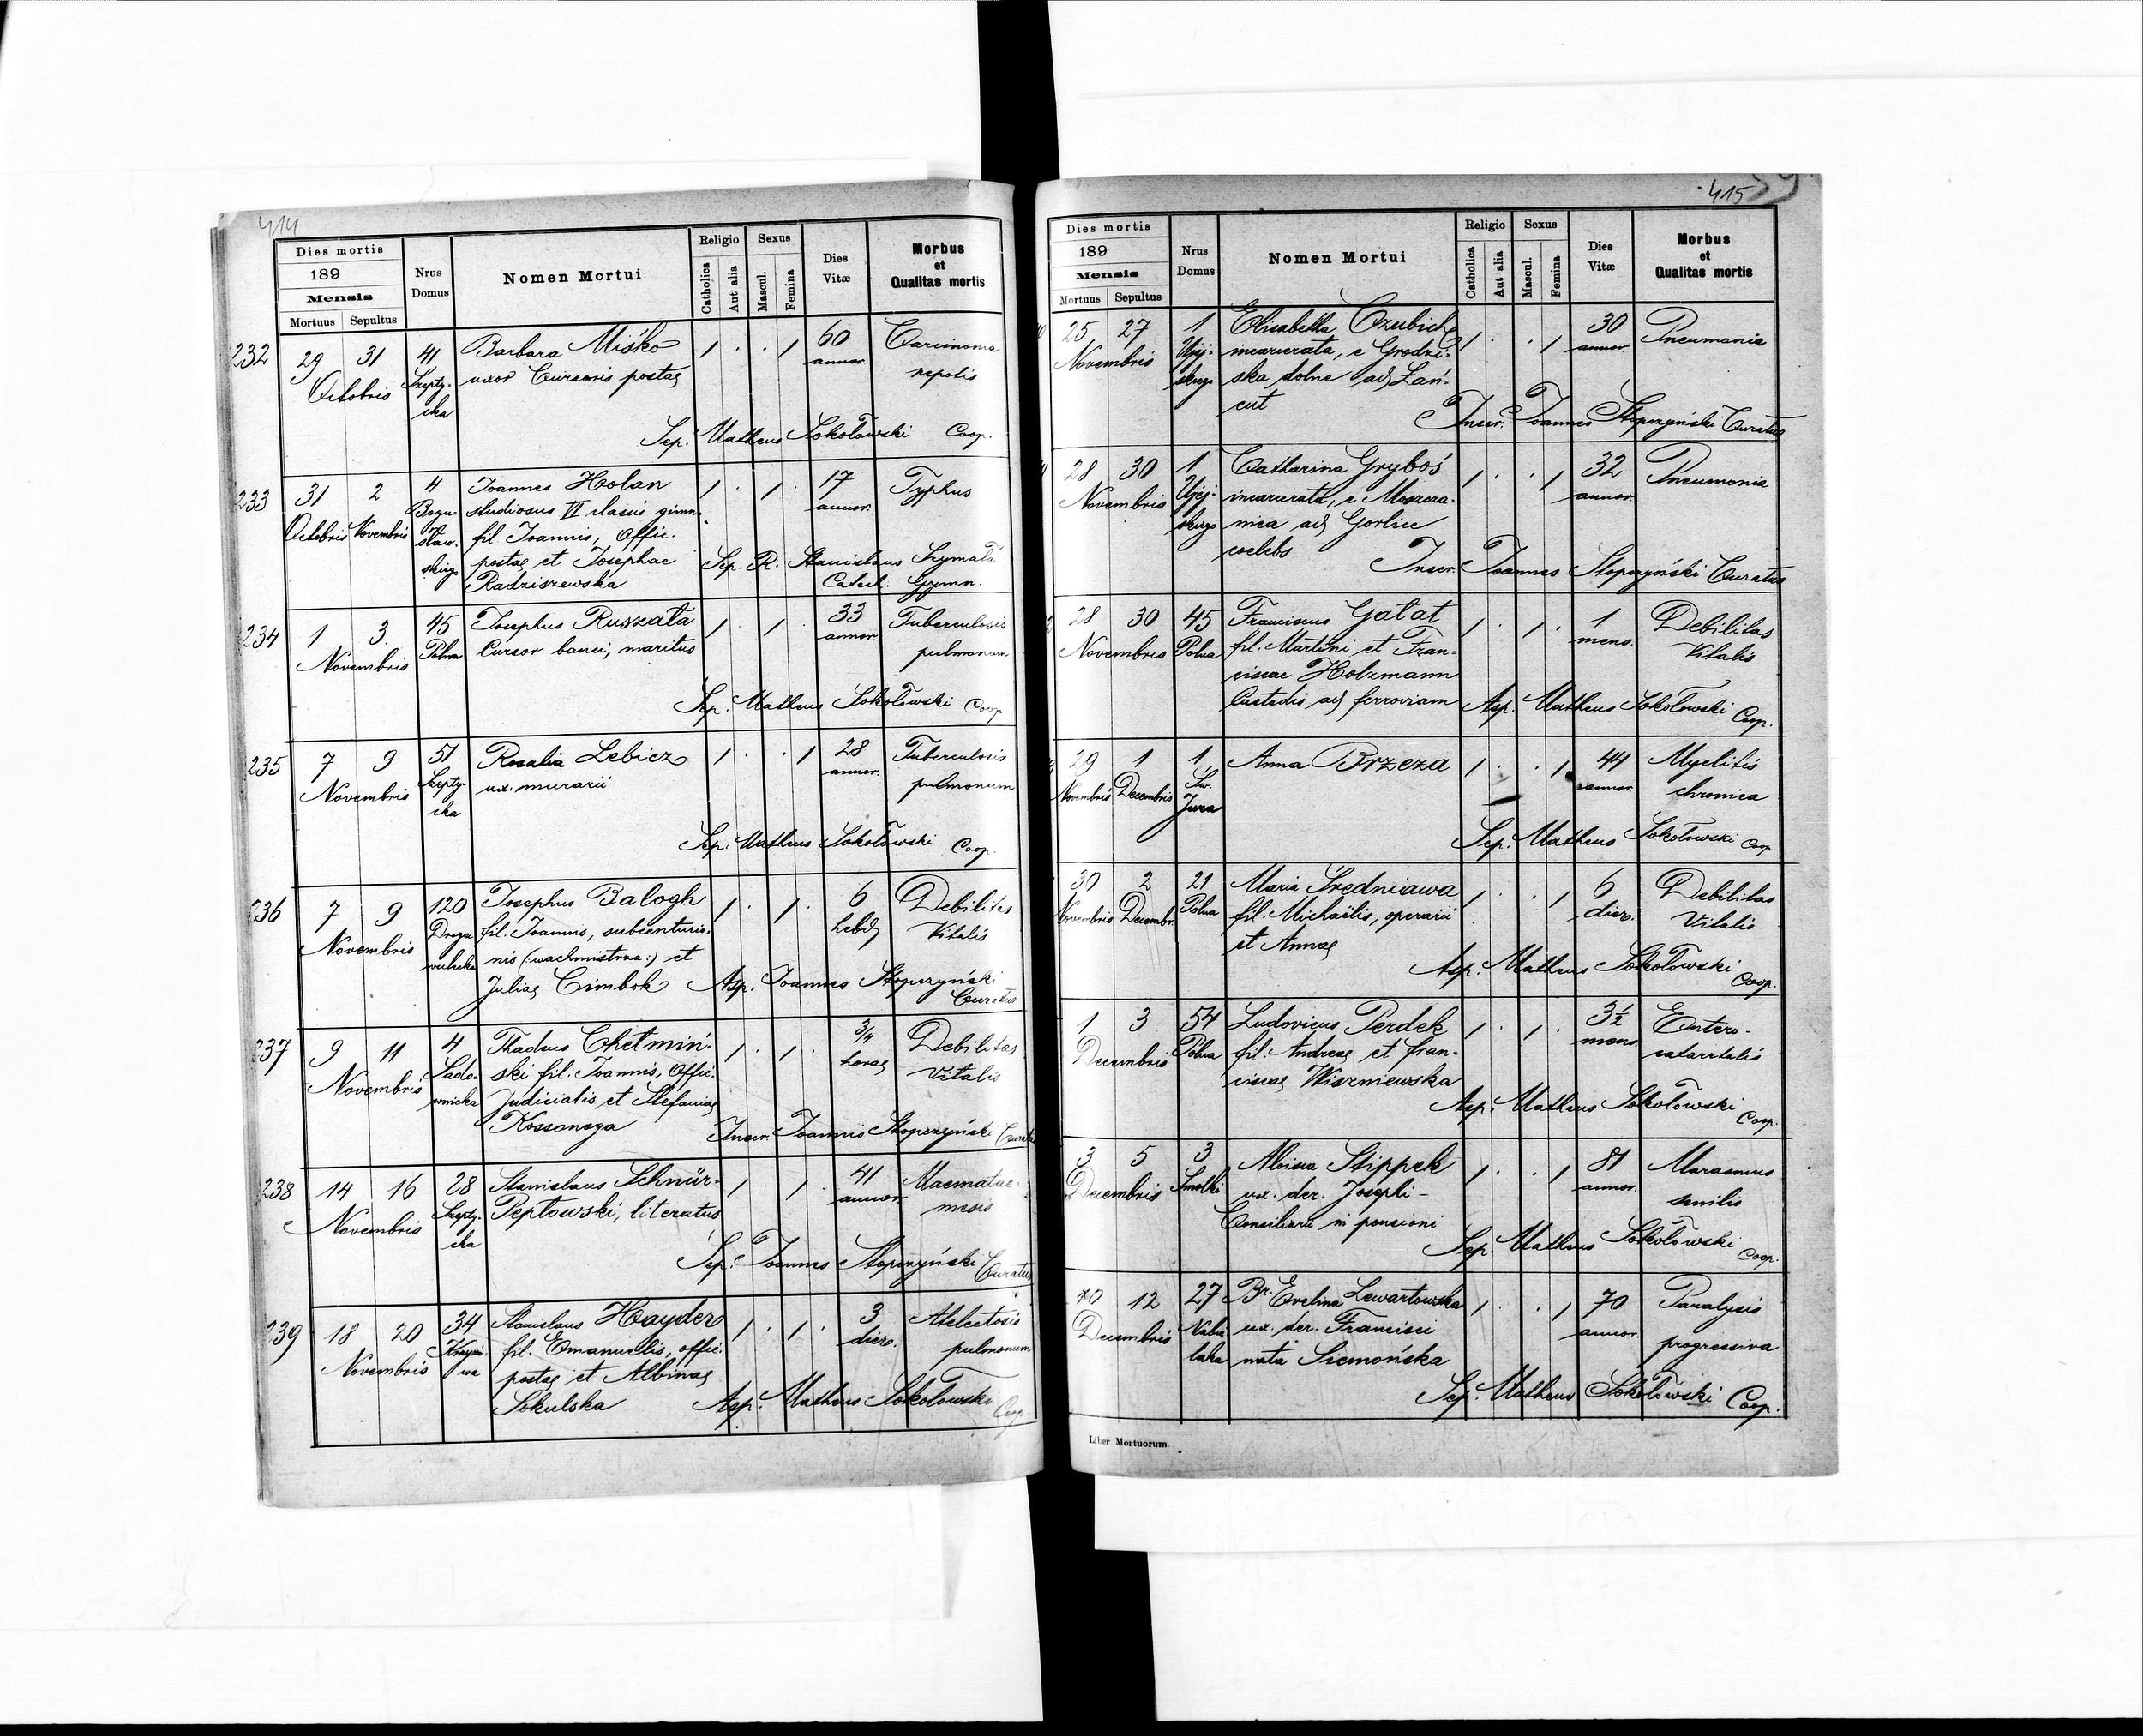 414
Dies mortis
189
Mensis
Mortuus Sepultus
Nrus Domus
Nomen Mortui
Religio
Catholica Aut alia
Sexus
Mascul. Femina
Dies Vitæ
Morbus et Qualitas mortis
232 29 31 41 Barbara Miśko 1 . . 1 60 Carcinoma
Octobris Szepty- uxor Cursoris postae annor. nepotis
cka
Sep. Matheus Sokołowski Coop.
233 31 2 4 Joannes Holan 1 . 1 . 17 Typhus
Octobris Novembris Bogu- studiosus VI clasis gimn. annor.
sław- fil. Joannis, Offic.
skiego postae et Josephae Sep. R. Stanislaus Szymała
Radziszewska Catech. Gymn.
234 1 3 45 Josephus Ruszała 1 . 1 . 33 Tuberculosis
Novembris Polna Cursor banci, maritus annor. pulmonum
Sep. Matheus Sokołowski Coop.
235 7 9 51 Rosalia Lebicz 1 . . 1 28 Tuberculosis
Novembris Szepty- ux. murarii annor. pulmonum
cka
Sep. Matheus Sokołowski Coop.
236 7 9 120 Josephus Balogh 1 . 1 . 6 Debilitas
Novembris Droga fil. Joannis, subcenturio- hebd. Vitalis
wulecka nis (:wachmistrza:) et
Juliae Cimbok Asp. Joannes Stopczyński
Curatus
237 9 11 4 Thadeus Chełmiń- 1 . 1 . 3/4 Debilitas
Novembris Sado- ski fil. Joannis, Offic. horae Vitalis
wnicka Judicialis et Stefaniae
Kossonoga Inscr. Joannes Stopczyński Curatus
238 14 16 28 Stanislaus Schnür- 1 . 1 . 41 Haematae-
Novembris Szepty- Pepłowski, literatus annor. mesis
cka
Sep. Joannes Stopczyński Curatus
239 18 20 34 Stanislaus Hayder 1 . 1 . 3 Atelectosis
Novembris fil. Emanuelis, offic. dier. pulmonum
postae et Albinae
Sokulska Asp. Matheus Sokołowski Coop.
415
Dies mortis
189
Mensis
Mortuus Sepultus
Nrus Domus
Nomen Mortui
Religio
Catholica Aut alia
Sexus
Mascul. Femina
Dies Vitæ
Morbus et Qualitas mortis
25 27 1 Elisabetha 1 . . 1 30 Pneumonia
Novembris Ujej- incarcerata, e Grodzi- annor.
skiego ska dolne ad Łań-
cut Inscr. Joannes Stopczyński Curatus
28 30 1 Catharina Gryboś 1 . . 1 32 Pneumonia
Novembris Ujej- incarcerata, e Moszcza- annor.
skiego nica ad Gorlice
coelebs
Inscr. Joannes Stopczyński Curatus
28 30 45 Franciscus Gałat 1 . 1 . 1 Debilitas
Novembris Polna fil. Martini et Fran- mens. Vitalis
ciscae Holzmann
Custodis ad ferroviam Asp. Matheus Sokołowski Coop.
29 1 1 Anna Brzeza 1 . . 1 44 Myelitis
Novembris Decembris Św. annor. chronica
Jura
Sep. Matheus Sokołowski Coop.
30 2 21 Maria Średniawa 1 . . 1 6 Debilitas
Novembris Decembr. Polna fil. Michaëlis, operarii dier. Vitalis
et Annae
Asp. Matheus Sokołowski Coop.
1 3 54 Ludovicus Perdek 1 . 1 . 3½ Entero-
Decembris Polna fil. Andreae et Fran- mens. catarrhalis
ciscae Wiszniewska
Asp. Matheus Sokołowski Coop.
3 5 3 Aloisia Stippek 1 . . 1 81 Marasmus
Decembris Smolki ux. der. Josephi- annor. senilis
Consiliarii in pensioni
Sep. Matheus Sokołowski Coop.
10 12 27 Br. Evelina Lewartowska 1 . . 1 70 Paralysis
Decembris Nabie- ux. der. Francisci annor. progressiva
laka nata Siemońska
Sep. Matheus Sokołowski Coop.
Liber Mortuorum.